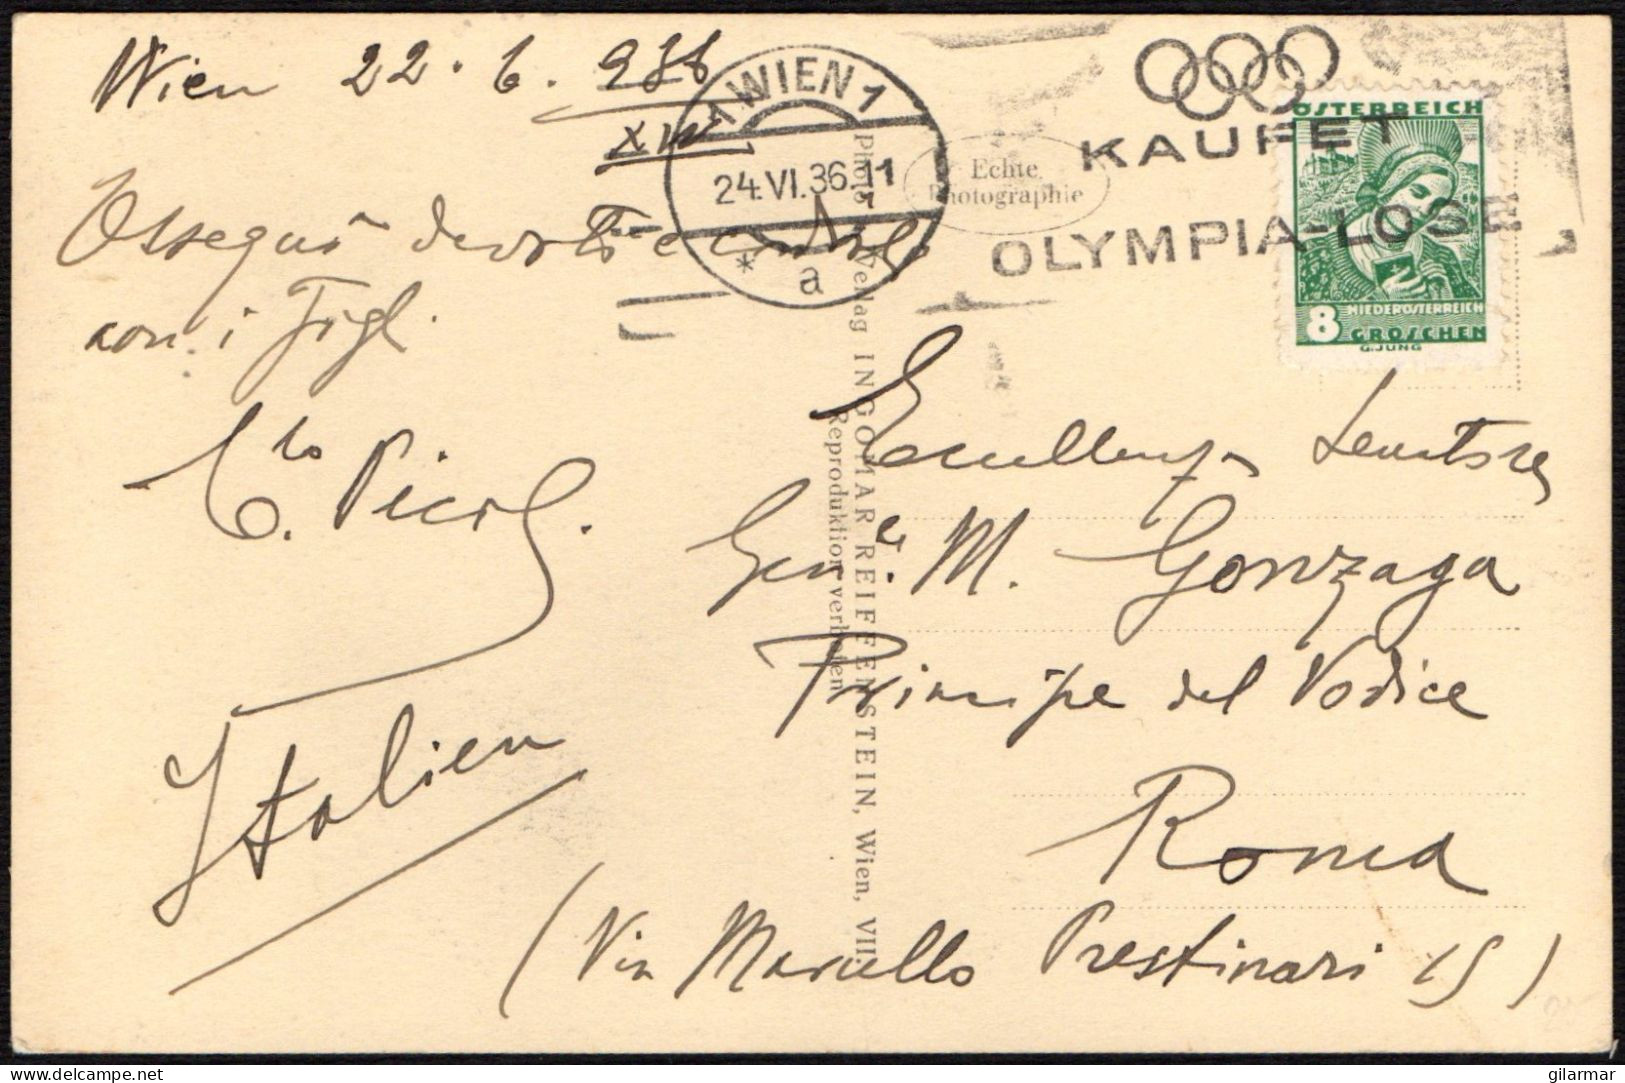 Wien 22.6.936
XIV
WIEN 1
24.VI.36.11
* a
KAUFET
OLYMPIA-LOSE
ÖSTERREICH
8 NIEDERÖSTERREICH
GROSCHEN
G.JUNG
Echte
Photographie
Ossequi devoti e cordiali
con i Figl.
C.to
Photo Verlag INGOMAR REIFFENSTEIN, Wien, VIII.
Reproduktion verboten
Eccellenza Senatore
Gen.le M. Gonzaga
Principe del Vodice
Roma
Italien
(Via Marcello Prestinari 15)
delcampe.net
gilarmar